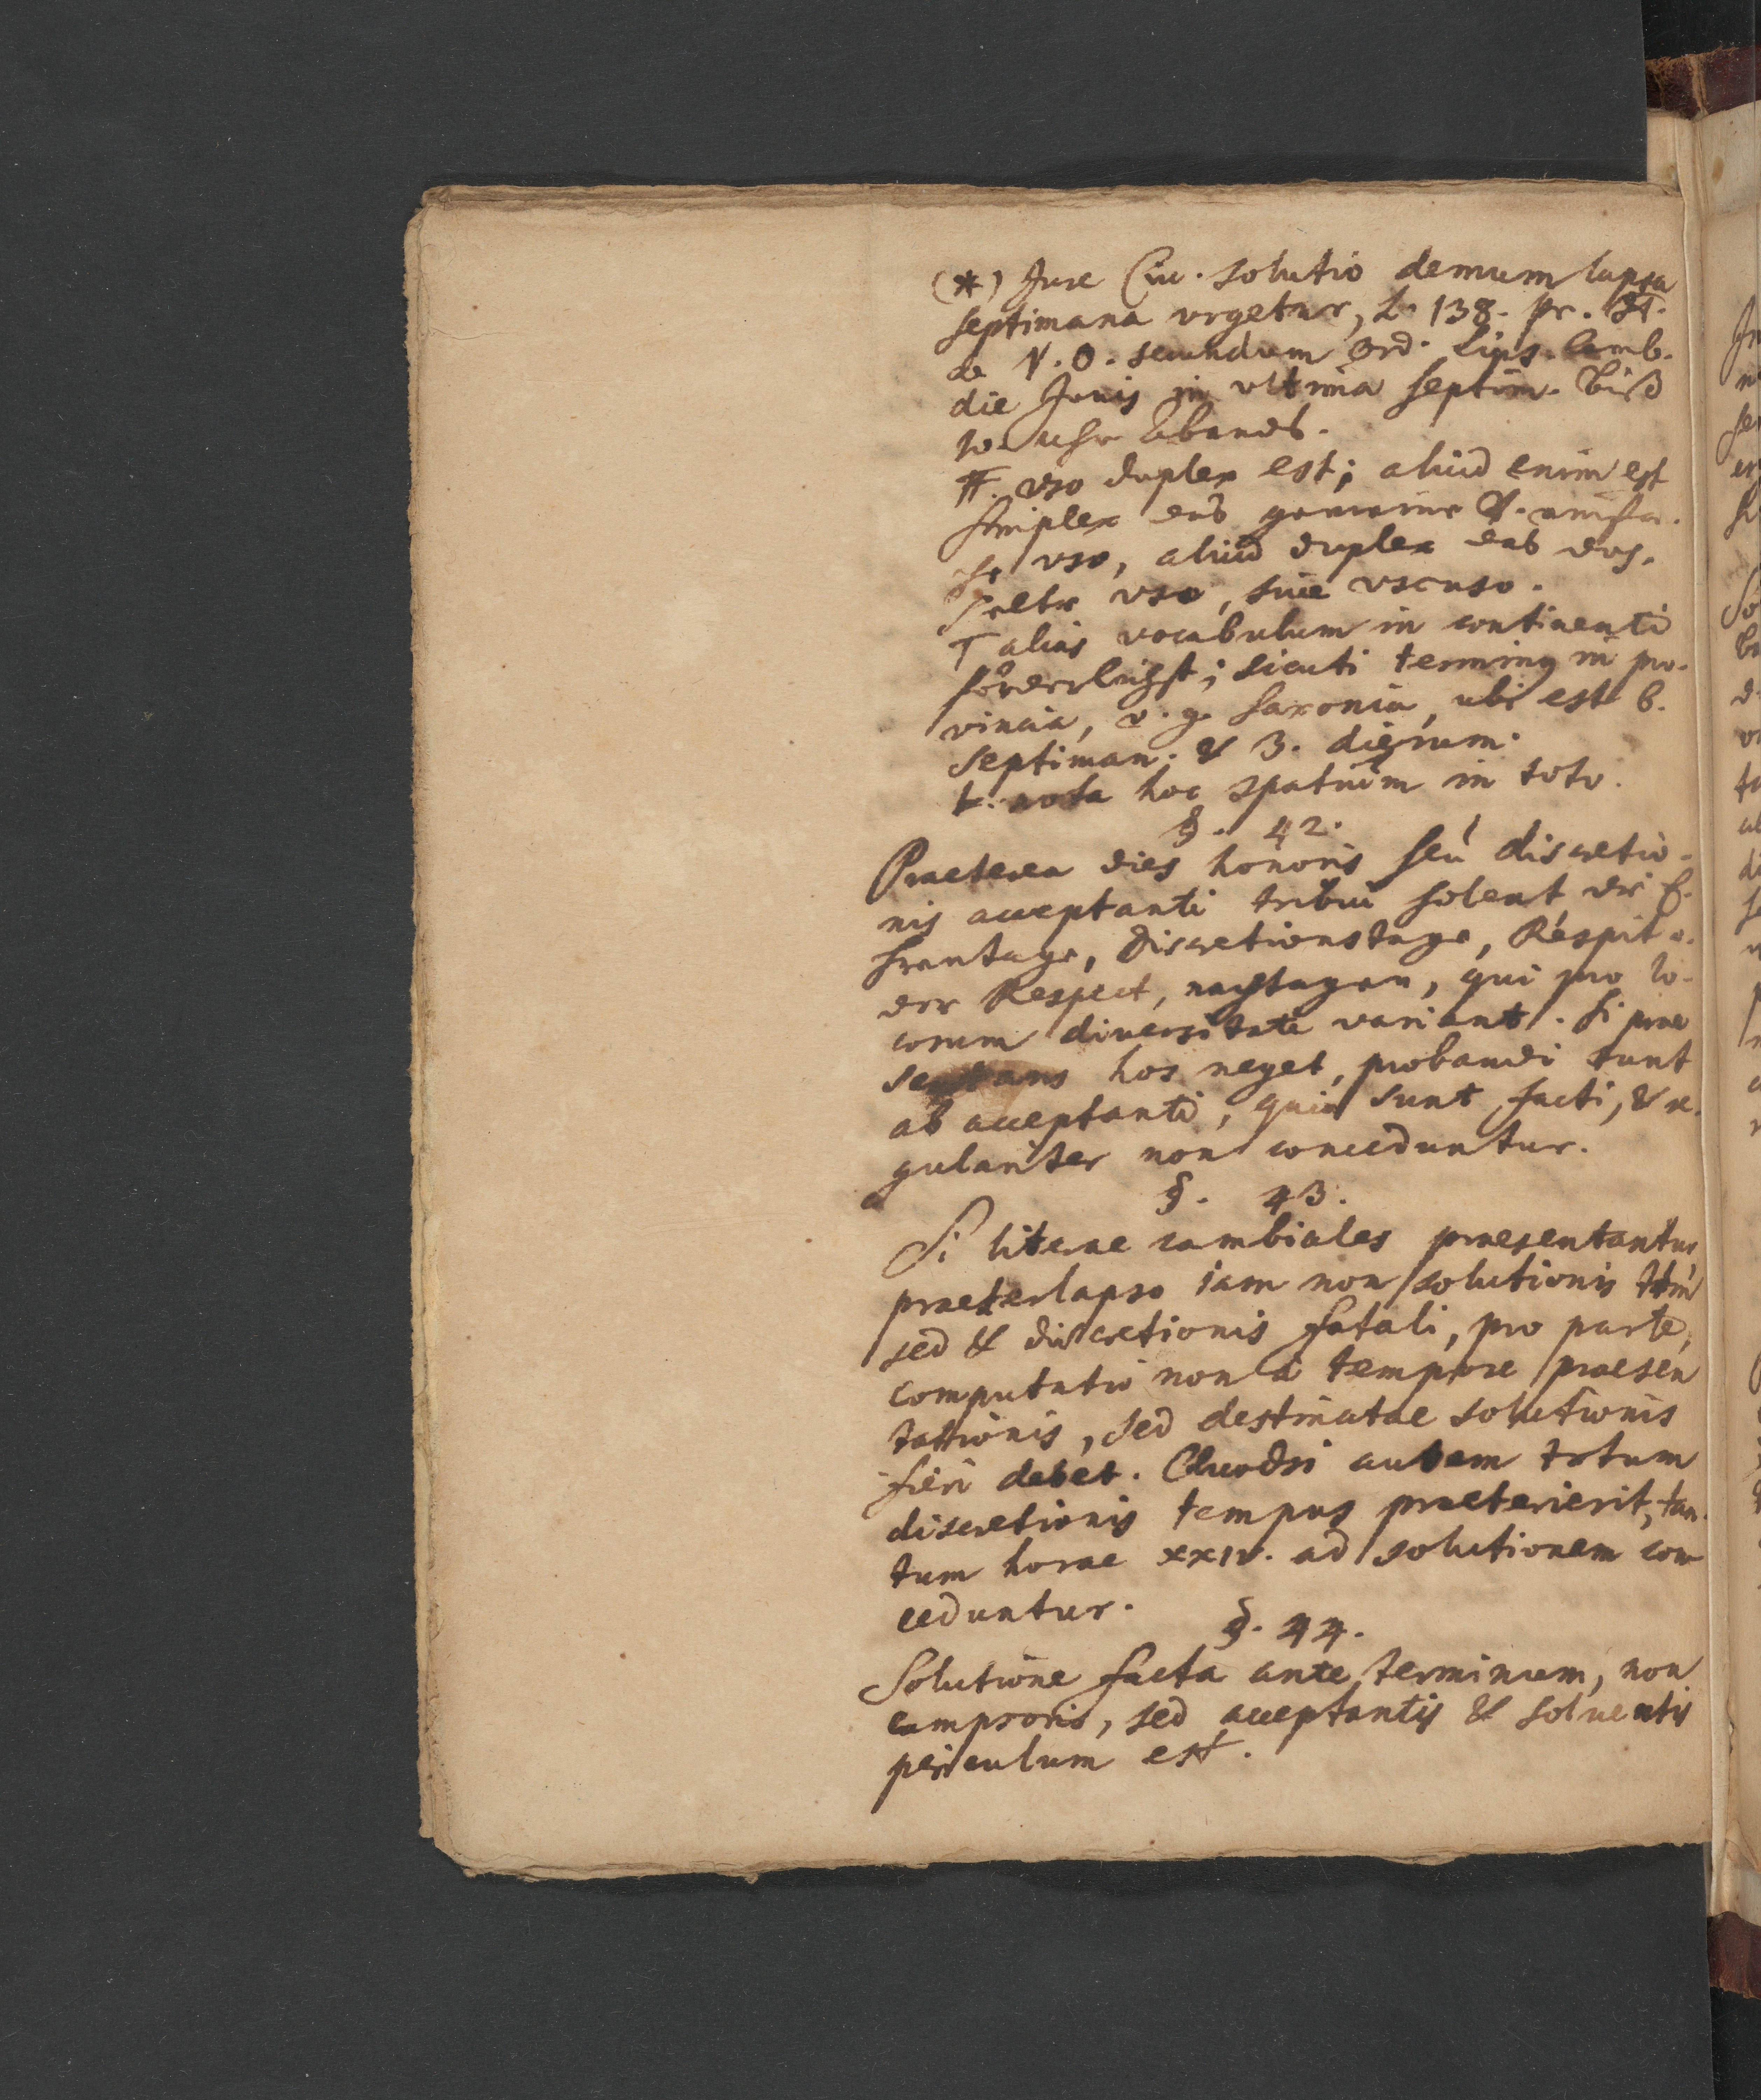 (*) Jure Civ. solutio demum lapsa
septimana urgetur, L. 138. pr. ff.
de V. O. secundum Ord. Lips. Camb.
die Jovis in ultima septim. biß
10 uhr Abends.
ff. uso duplex est; aliud enim est
simplex das gemeine u. einfa-
che uso, aliud duplex das dop-
pelte uso, sive
T alias vocabulum in continenti
förderlichst; sicuti terminus in pro-
vincia, v. g. Saxonia, ubi est 6.
septiman. & 3. dierum.
nota hoc spatium in toto.
§. 42.
Praeterea dies honoris seu discretio-
nis acceptanti tribui solent die E-
hrentage, Discretionstage, Respit o-
der Respect, nachtagen, qui pro lo-
corum diversitate variant. Si prae
sentans hos neget, probandi sunt
ab acceptanti, quia sunt facti, & re-
gulariter non conceduntur.
§. 43.
Si literae cambiales praesentantur
praeterlapso iam non solutionis ttm
sed & discretionis fatali, pro parte,
computatio non a tempore praesen
tationis, sed destinatae solutionis
fieri debet. Quodsi autem totum
discretionis tempus praeterierit, tan-
tum horae XXIV. ad solutionem con
ceduntur.
§. 44.
Solutione facta ante terminum, non
campsoris, sed acceptantis & solventis
periculum est.